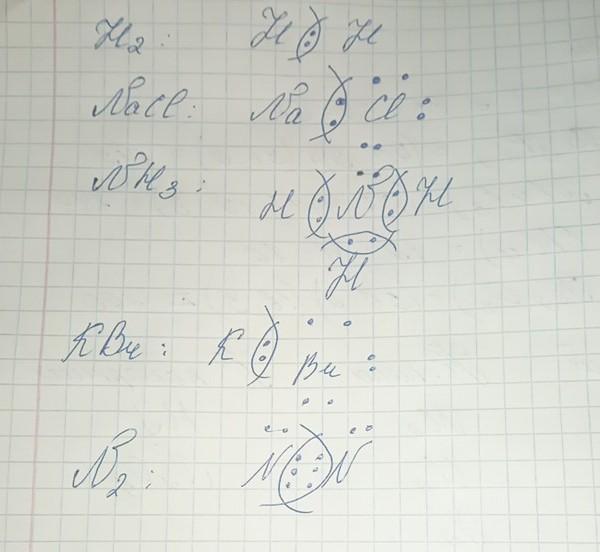 H2: H H
NaCl: Na Cl
NH3: H N H
H
KBr: K Br
N2: N N